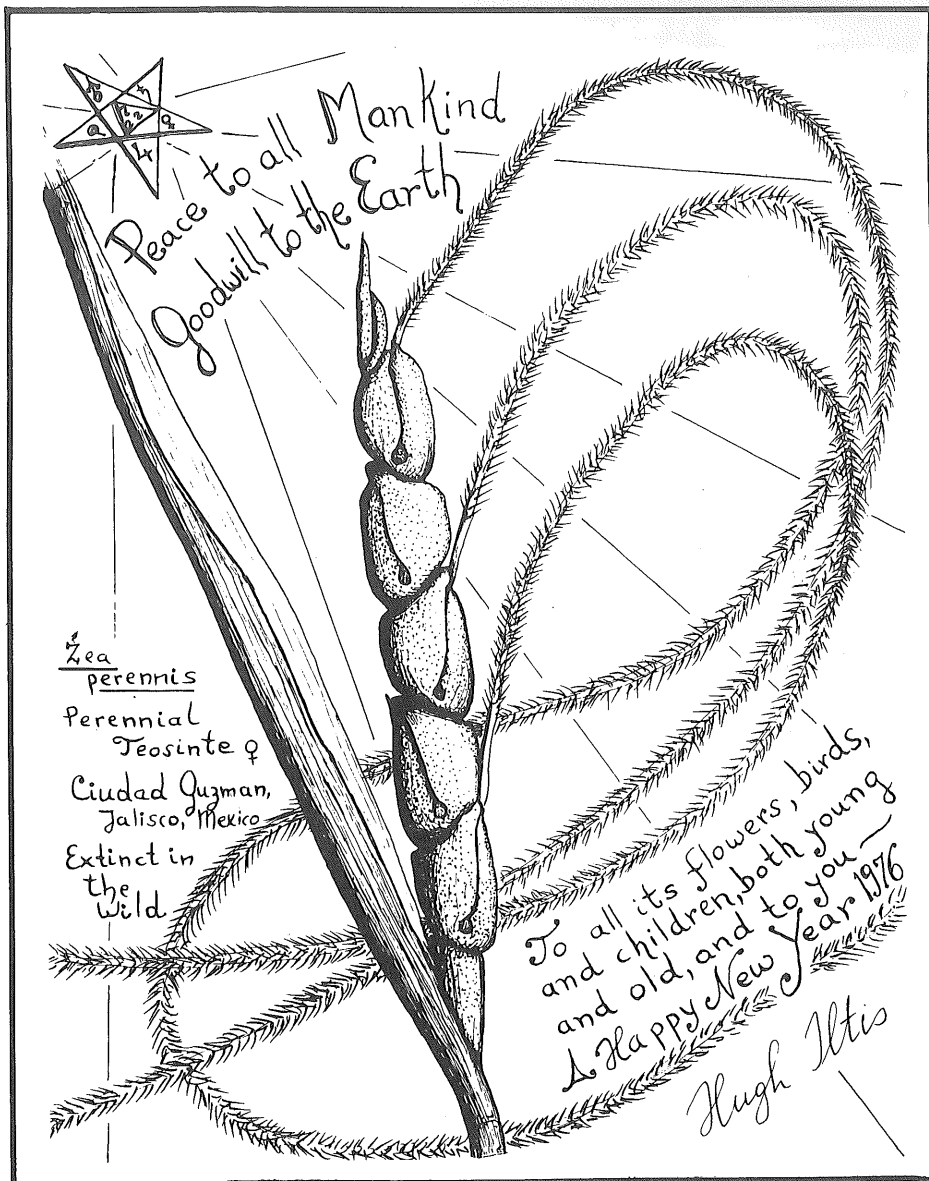 Peace to all Mankind
Goodwill to the Earth
Zea
perennis
Perennial
Teosinte ♀
Ciudad Guzman,
Jalisco, Mexico
Extinct in
the
Wild
To all its flowers, birds,
and children, both young
and old, and to you —
A Happy New Year 1976
Hugh Iltis